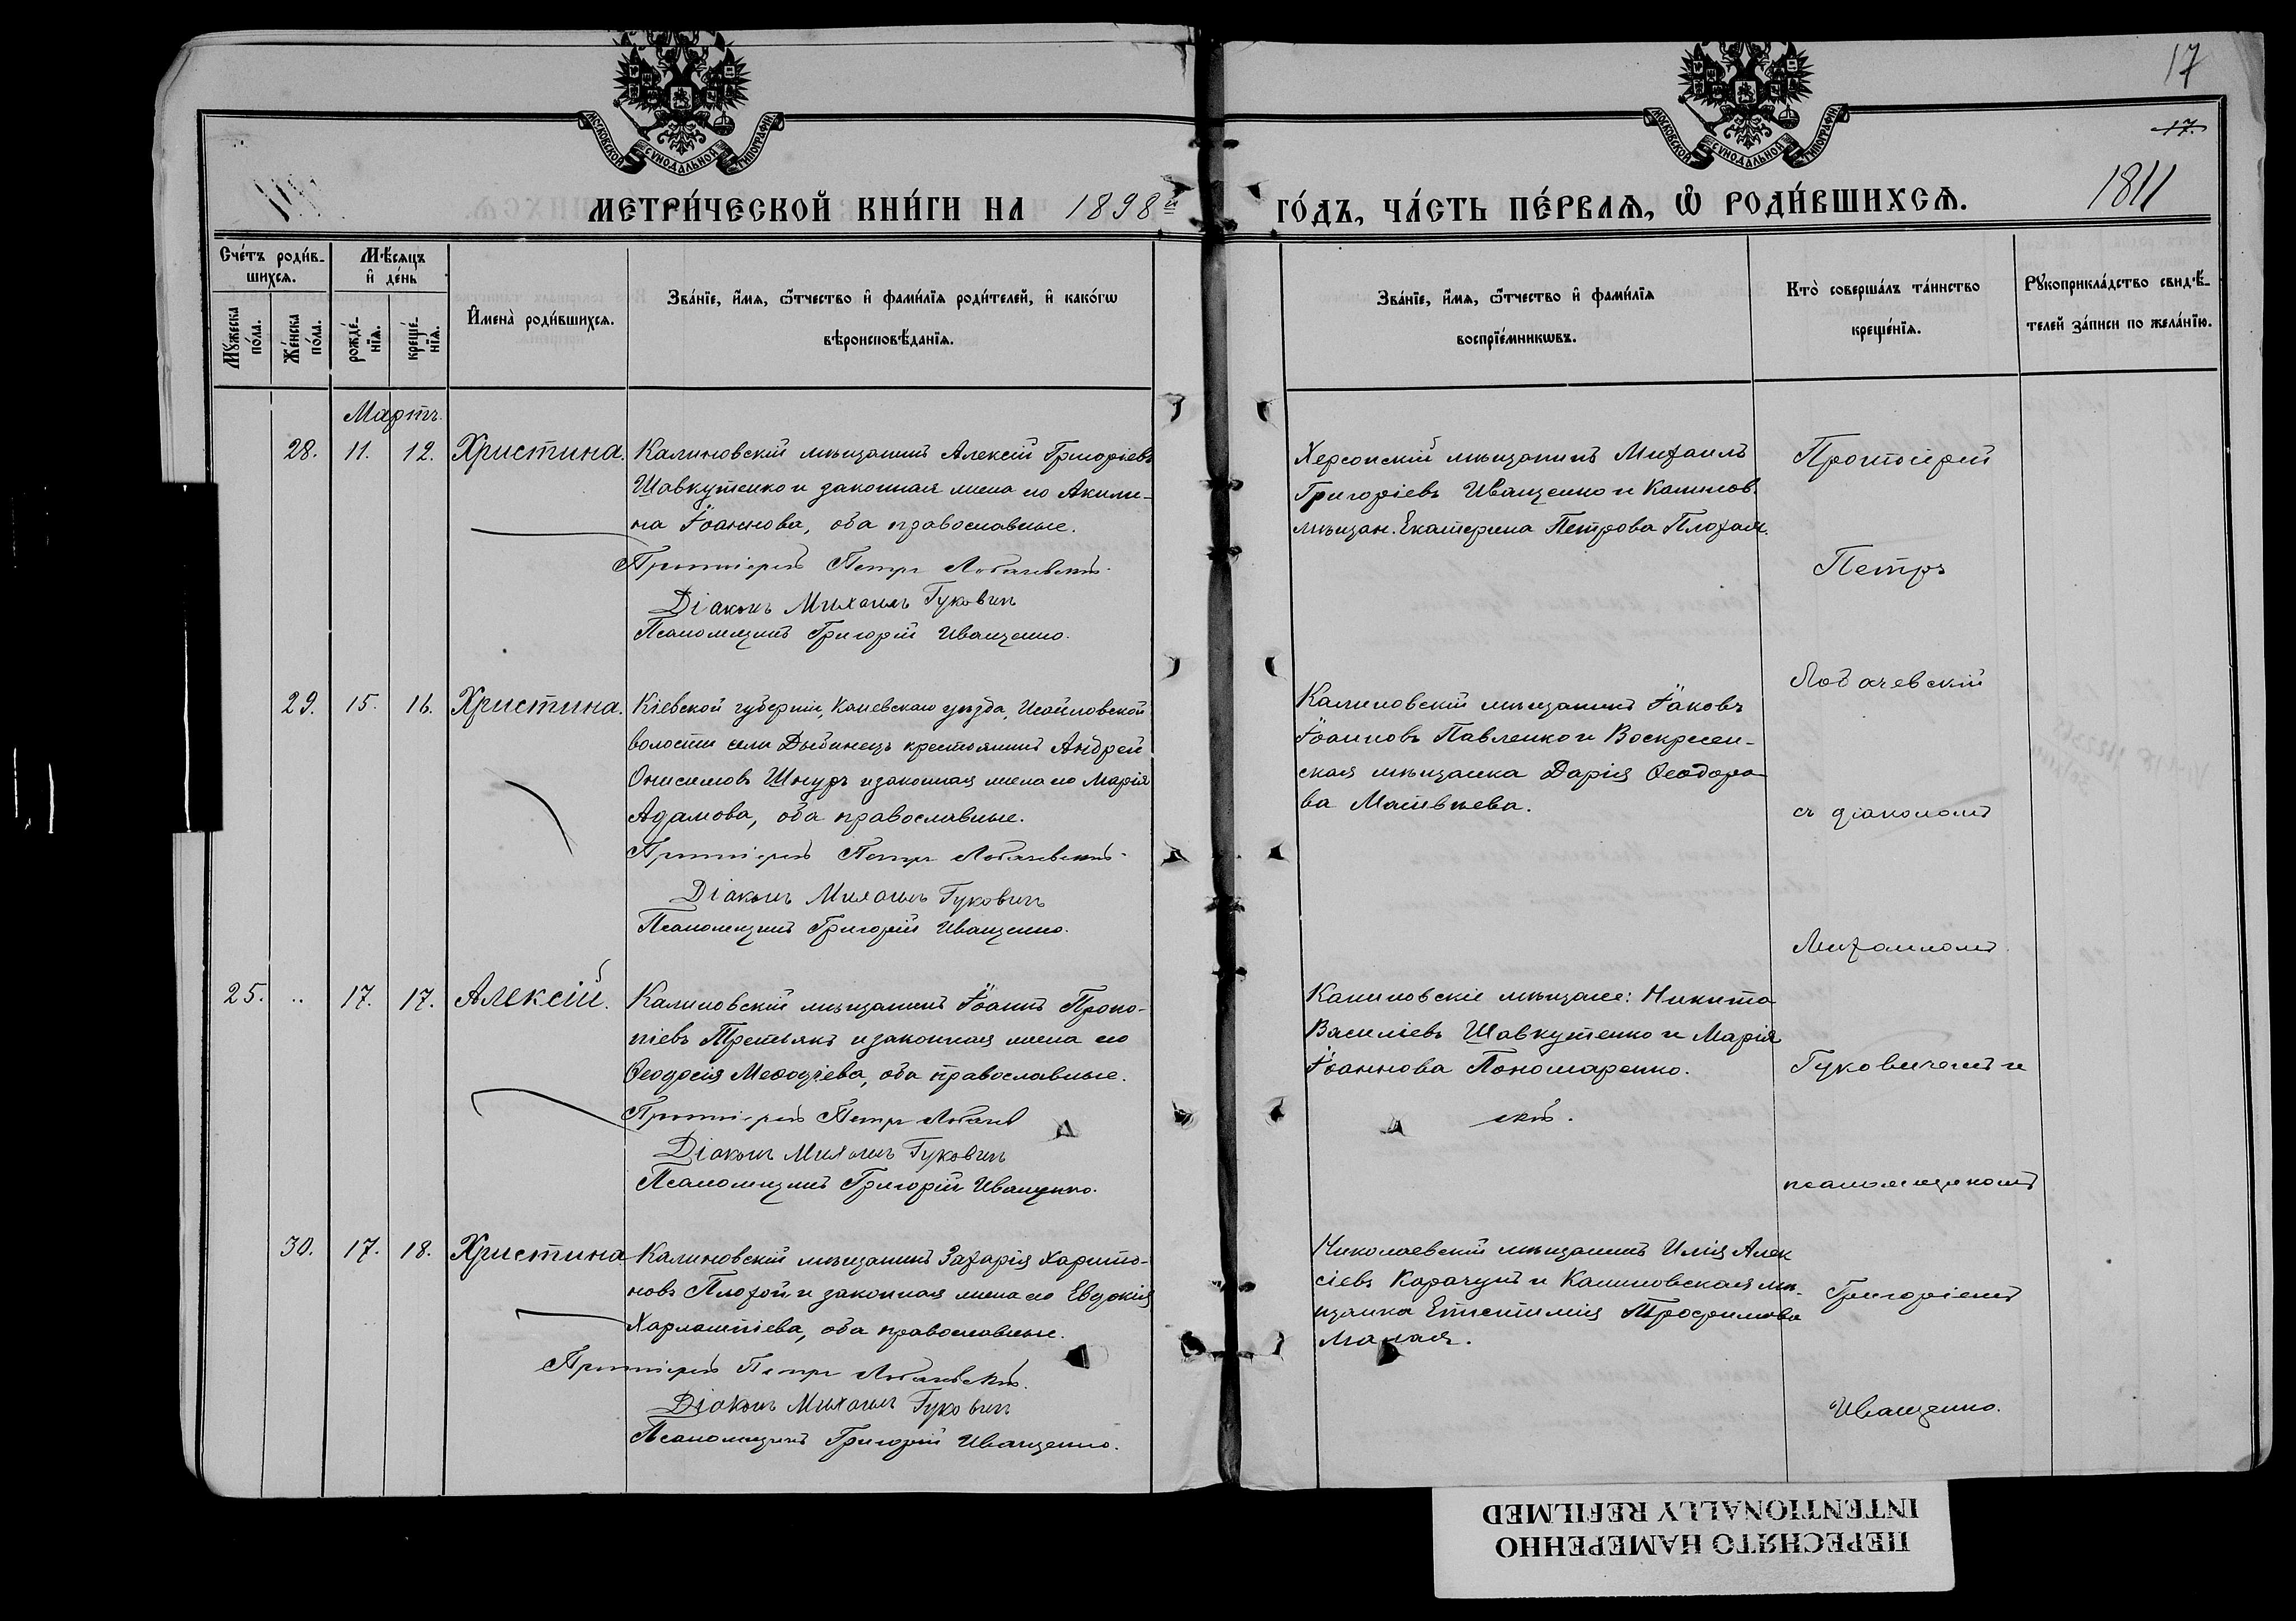 17
17.
1811
МОСКОВСКОЙ СѴНОДАЛЬНОЙ ТИПОГРАФІИ
МОСКОВСКОЙ СѴНОДАЛЬНОЙ ТИПОГРАФІИ
МЕТРИ́ЧЕСКОЙ КНИ́ГИ НА 1898й ГО́ДЪ, ЧА́СТЬ ПЕ́РВАѦ, Ѡ҆ РОДИ́ВШИХСѦ.
Сче́тъ роди́в-
шихсѧ.
Мꙋ́жеска по́ла.
Же́нска по́ла.
Мѣ́сѧцъ
и҆ де́нь
рожде́-
нїѧ.
креще́-
нїѧ.
И҆мена̀ роди́вшихсѧ.
Зва́нїе, и҆́мѧ, ѻ҆́тчество и҆ фами́лїѧ роди́телей, и҆ како́гѡ
вѣроисповѣ́данїѧ.
Зва́нїе, и҆́мѧ, ѻ҆́тчество и҆ фами́лїѧ
воспрїе́мникѡвъ.
Кто̀ соверша́лъ та́инство
креще́нїѧ.
Рꙋкоприкла́дство свидѣ́-
телей за́писи по жела́нїю.
Мартъ.
28. 11. 12. Христина. Калиновскій мѣщанинъ Алексій Григоріевъ
Шавкутенко и законная жена его Акили-
на Іоаннова, оба православные.
Протоіерей Петръ Лобачевскій.
Діаконъ Михаилъ Гуковичъ
Псаломщикъ Григорій Иващенко.
Херсонскій мѣщанинъ Михаилъ
Григоріевъ Иващенко и Калинов.
мѣщан. Екатерина Петрова Плохая.
29. 15. 16. Христина. Кіевской губерніи, Каневскаго уѣзда,
волости села Дыбинецъ крестьянинъ Андрей
Онисимовъ Шнуръ и законная жена его Марія
Адамова, оба православные.
Протоіерей Петръ Лобачевскій.
Діаконъ Михаилъ Гуковичъ
Псаломщикъ Григорій Иващенко.
Калиновскій мѣщанинъ Іаковъ
Іоанновъ Павленко и Воскресен-
ская мѣщанка Дарія Ѳеодоро-
ва Матвѣева.
25. .. 17. 17. Алексій. Калиновскій мѣщанинъ Іоаннъ Проко-
піевъ Третьякъ и законная жена его
Ѳеодосія Меѳодіева, оба православные.
Протоіерей Петръ Лобачев
скій.
Діаконъ Михаилъ Гуковичъ
Псаломщикъ Григорій Иващенко.
Калиновскіе мѣщане: Никита
Василіевъ Шавкутенко и Марія
Іоаннова Пономаренко.
30. 17. 18. Христина Калиновскій мѣщанинъ Захарія Харито-
новъ Плохой и законная жена его Евдокія
Харлампіева, оба православные.
Протоіерей Петръ Лобачевскій.
Діаконъ Михаилъ Гуковичъ
Псаломщикъ Григорій Иващенко.
Николаевскій мѣщанинъ Илія Алек
сіевъ Карачунъ и Калиновская мѣ-
щанка Трофимова
Малая.
Протоіерей
Петръ
Лобачевскій
съ діакономъ
Михаиломъ
Гуковичемъ и
псаломщикомъ
Григоріемъ
Иващенко.
ПЕРЕСНЯТО НАМЕРЕННО
INTENTIONALLY REFILMED